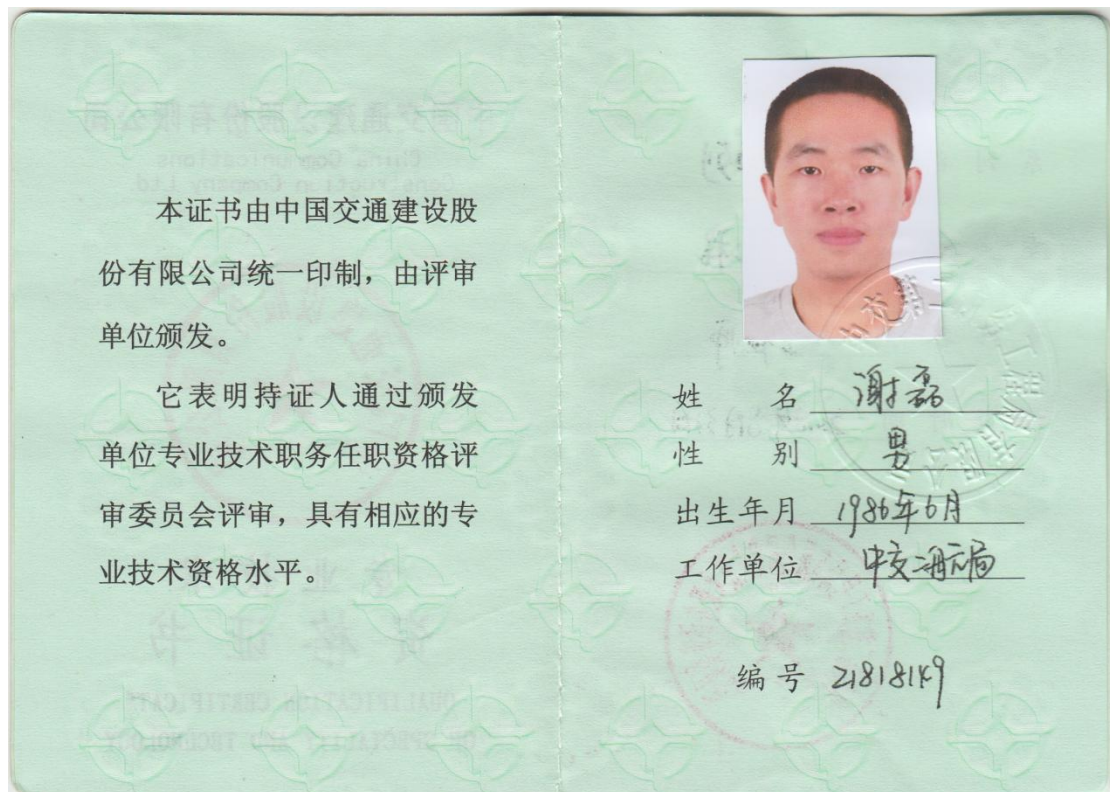 本证书由中国交通建设股
份有限公司统一印制，由评审
单位颁发。
它表明持证人通过颁发
单位专业技术职务任职资格评
审委员会评审，具有相应的专
业技术资格水平。
姓 名 谢磊
性 别 男
出生年月 1986年6月
工作单位 中交二航局
编号 21818149